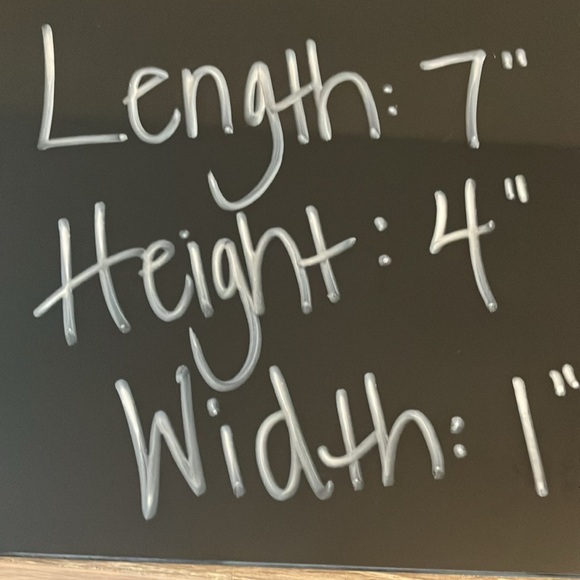 Length: 7"
Height: 4"
Width: 1"